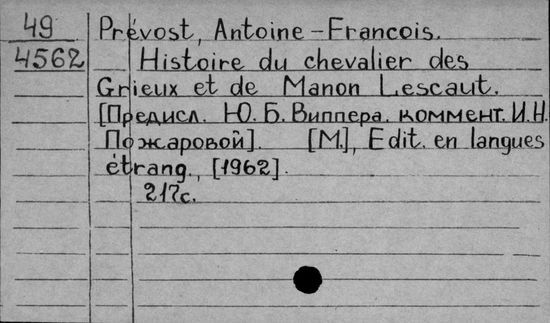 49 Prévost, Antoine-Francois.
4562 Histoire du chevalier des
Grieux et de Manon Lescaut.
[Предисл. Ю. Б. Виппера. коммент. И.Н.
Пожаровой]. [М.], Edit. en langues
étrang., [1962].
217с.